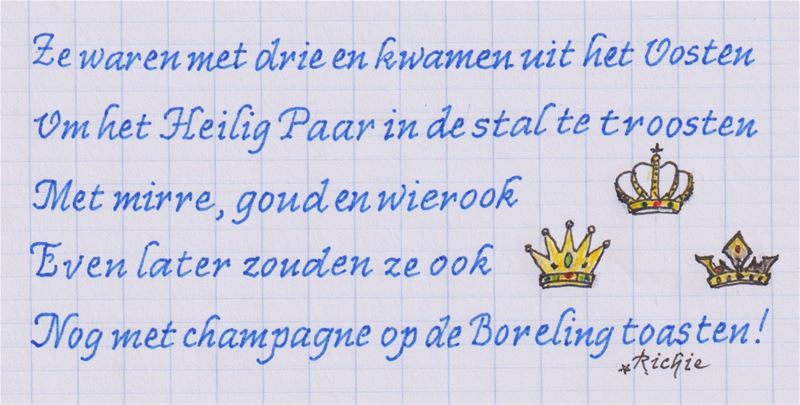 Ze waren met drie en kwamen uit het Oosten
Om het Heilig Paar in de stal te troosten
Met mirre, goud en wierook
Even later zouden ze ook
Nog met champagne op de Boreling toasten!
*Richie